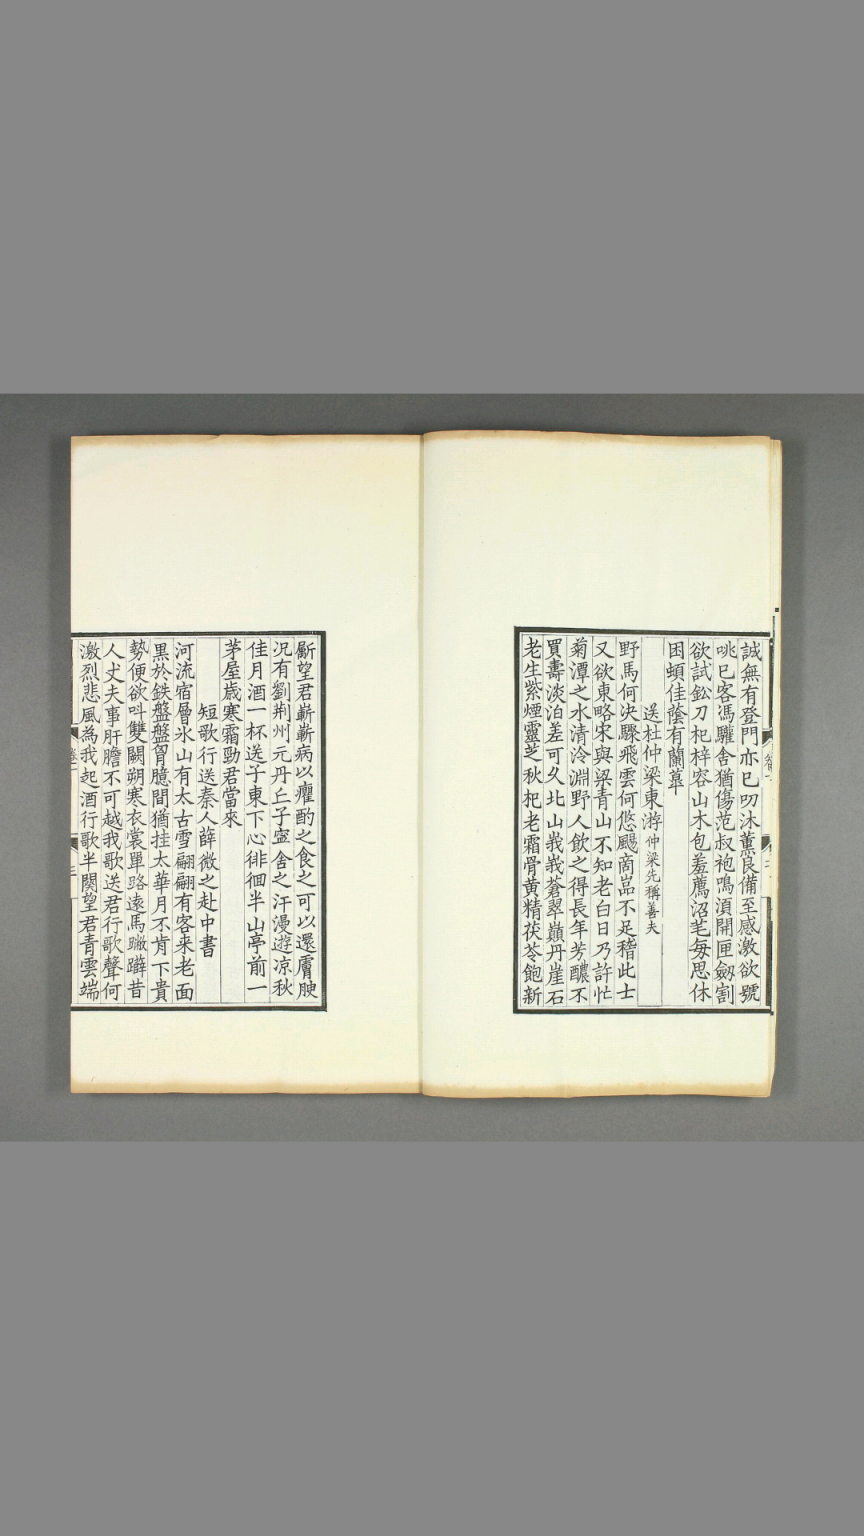 誠無有登門亦已叨沐薰良備至感激欲號
咷已客馮驩舍猶傷范叔袍鳴湏開匣劔割
欲試鈆刀杞梓容山木包羞薦沼芼每思休
困頓佳蔭有蘭臯
送杜仲梁東游仲梁先稱善夫
野馬何決驟飛雲何悠颺啇嵓不足稽此士
又欲東略宋與梁青山不知老白日乃許忙
菊潭之水清泠淵野人飲之得長年芳醲不
買壽淡泊差可久北山峩峩蒼翠巔丹崖石
老生紫煙靈芝秋杞老霜骨黄精茯苓飽新
斸望君嶄嶄病以癯酌之食之可以還膚腴
况有劉荆州元丹丘子寍舍之汗漫遊凉秋
佳月酒一杯送子東下心徘徊半山亭前一
茅屋歳寒霜勁君當來
短歌行送秦人薛微之赴中書
河流宿層氷山有太古雪翩翩有客来老面
黒於鉄盤盤胷臆間猶挂太華月不肯下貴
勢便欲呌雙闕朔寒衣裳單路遠馬蹩躠昔
人丈夫事肝膽不可越我歌送君行歌聲何
激烈悲風為我起酒行歌半闋望君青雲端